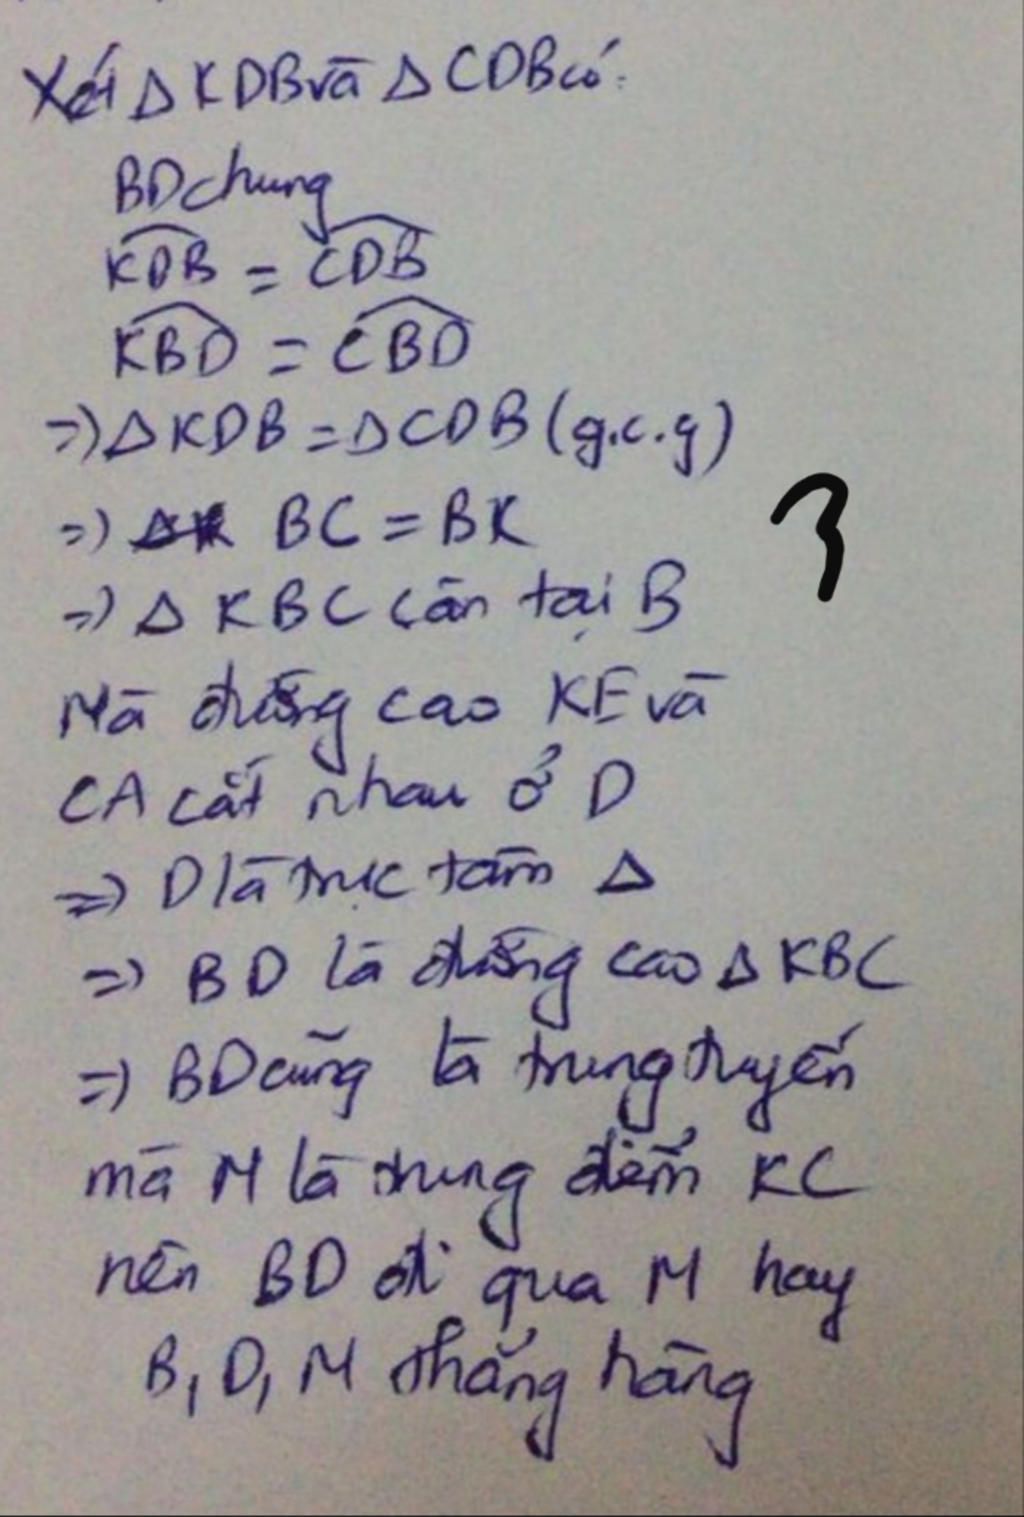 Xét Δ KDB và Δ CDB có:
BD chung
KDB = CDB
KBD = CBD
=) Δ KDB = Δ CDB (g.c.g)
=) BC = BK
=) Δ KBC cân tại B
Mà đường cao KE và
CA cắt nhau ở D
=) D là trực tâm Δ
=) BD là đường cao Δ KBC
=) BD cũng là trung tuyến
mà M là trung điểm KC
nên BD đi qua M hay
B, D, M thẳng hàng